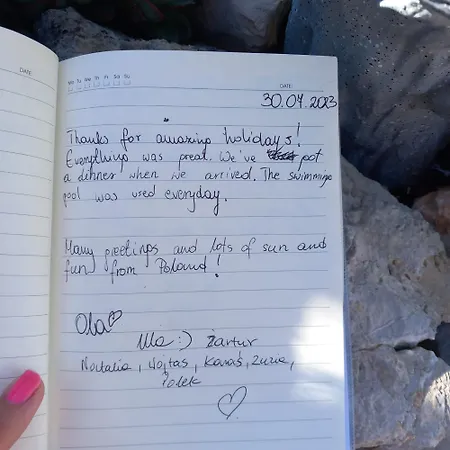 DATE:
Mo Tu We Th Fr Sa Su
DATE:
30.07.2023
Thanks for amazing holidays!
Everything was great. We've got
a dinner when we arrived. The swimming
pool was used everyday.
Many greetings and lots of sun and
fun from Poland!
Ola
Ula :) Żartur
Natalia, Wojtas, Karaś, Zuzia,
Polek